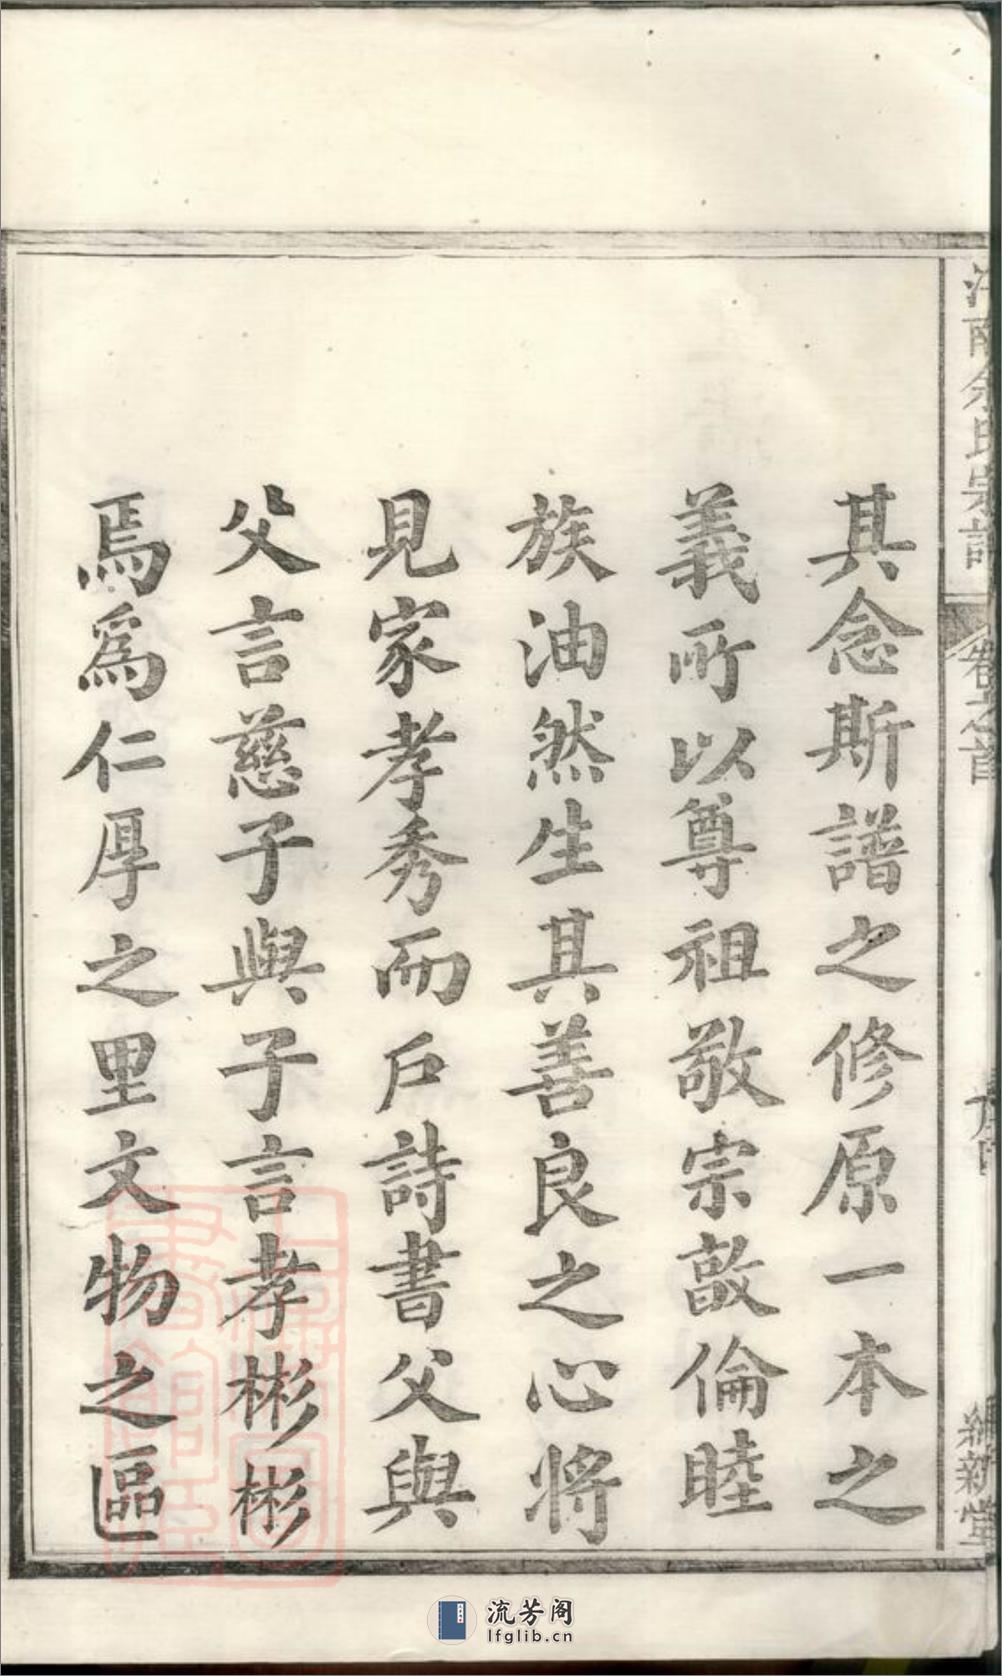 其念斯譜之修原一本之
義所以尊祖敬宗敦倫睦
族油然生其善良之心將
見家孝秀而戶詩書父與
父言慈子與子言孝彬彬
焉爲仁厚之里文物之區
余氏宗譜
卷之首
新堂
流芳阁
lfglib.cn